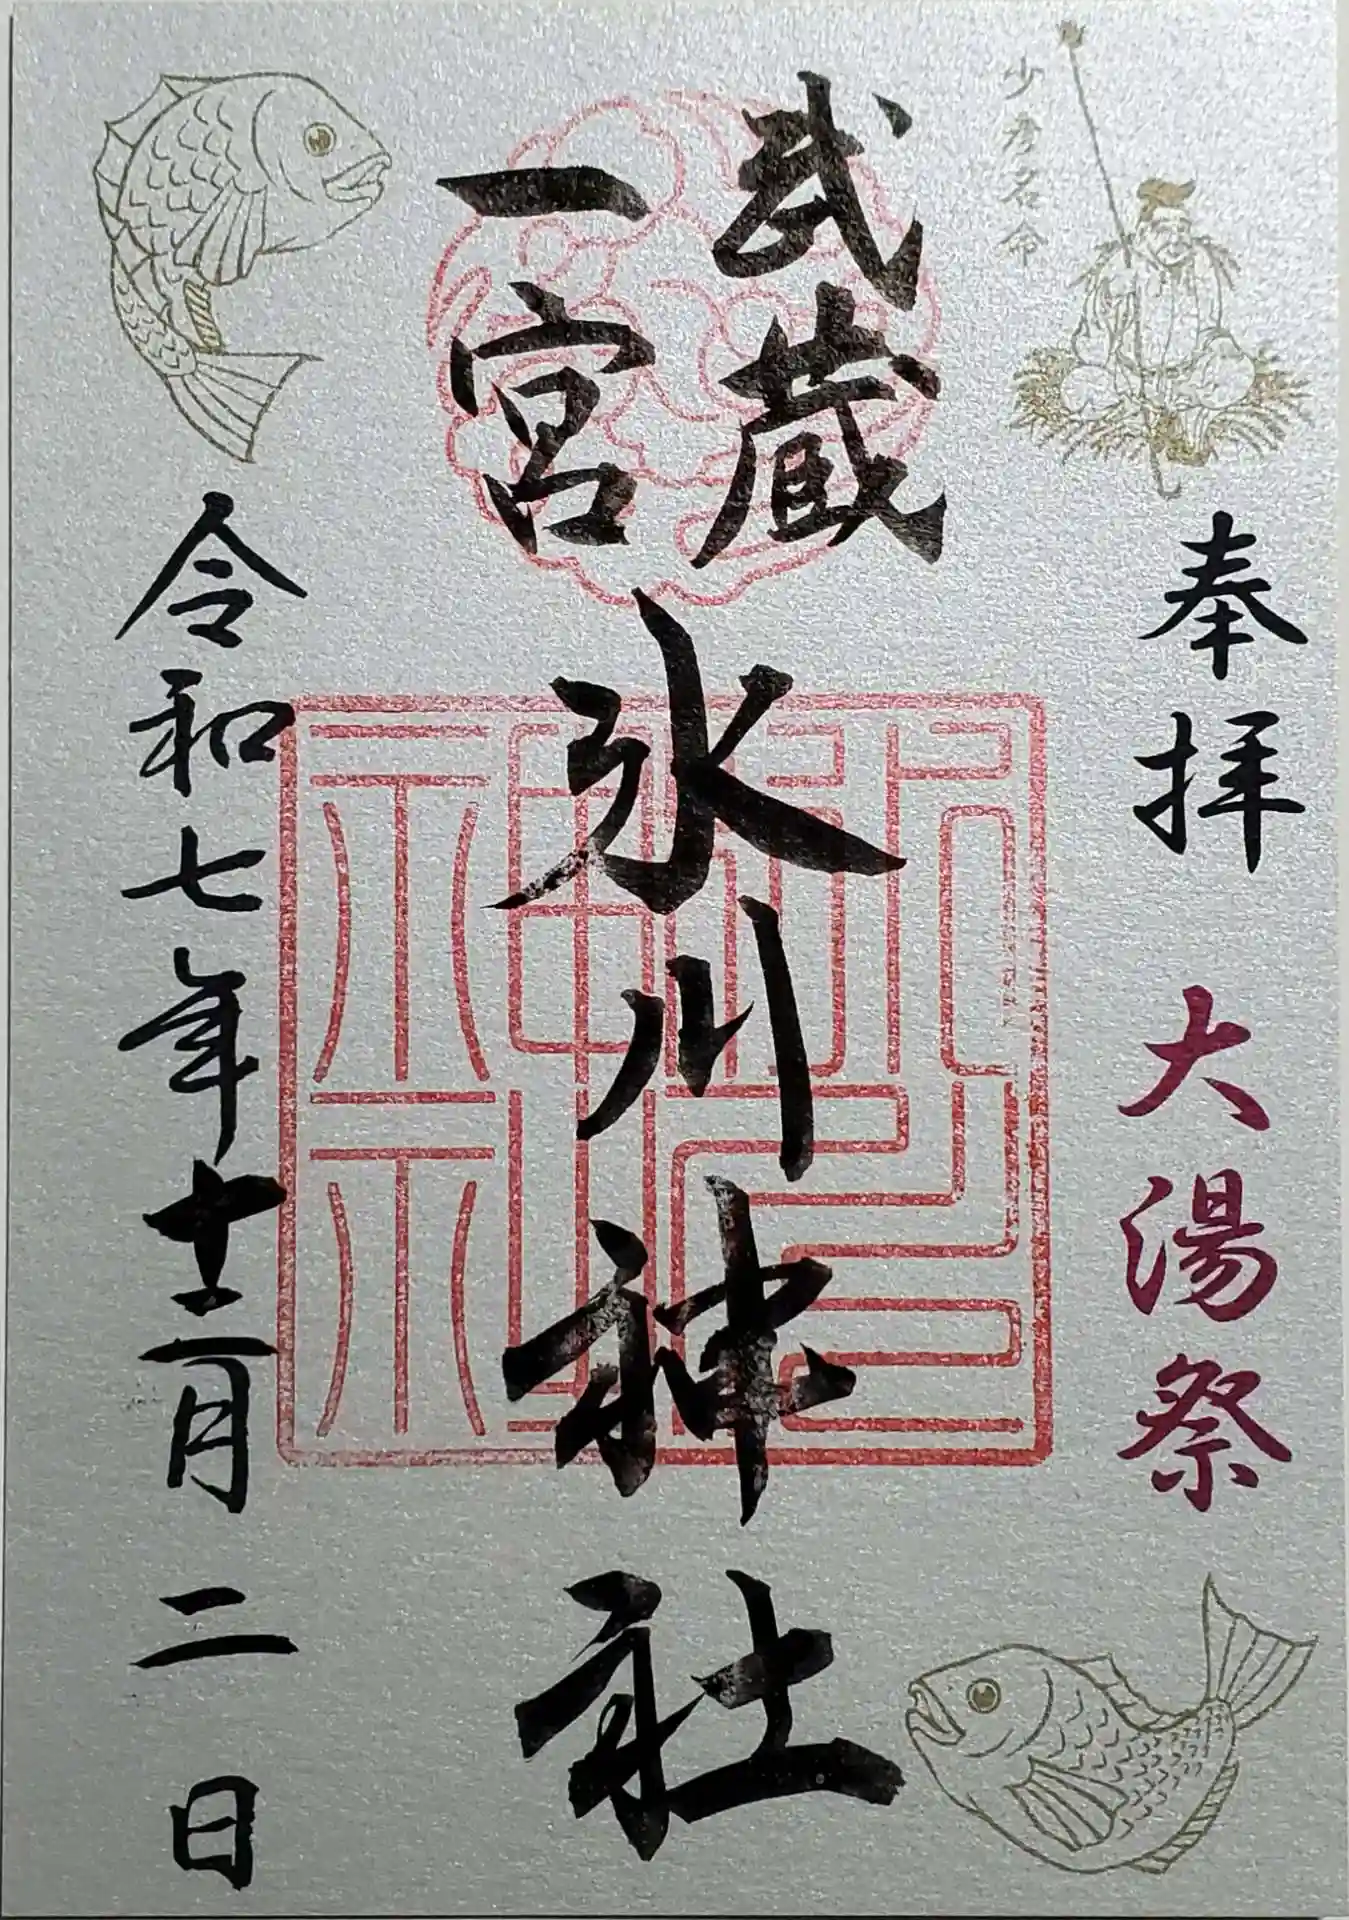 少彦名命
奉拝 大湯祭
武蔵
一宮
氷川神社
令和七年十二月二日